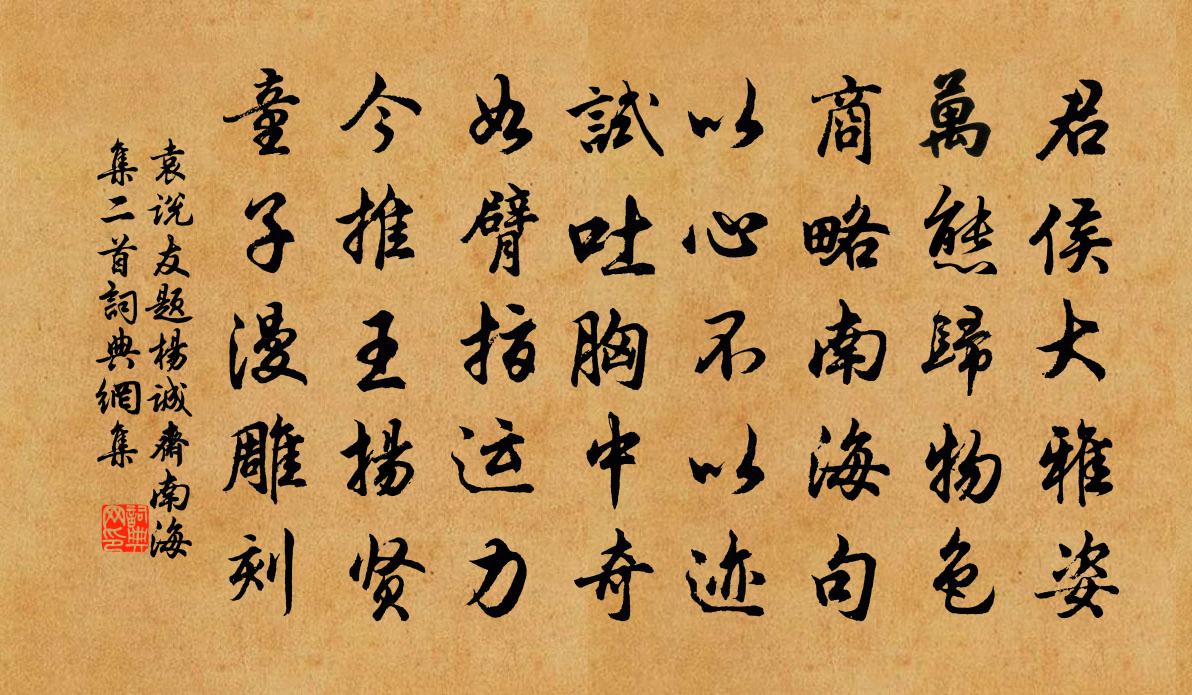 君侯大雅姿
萬態歸物色
商略南海句
以心不以迹
試吐胸中奇
如臂指运力
今推王揚贤
童子漫雕刻
袁说友题楊诚齋南海
集二首詞典網集
詞典
网印